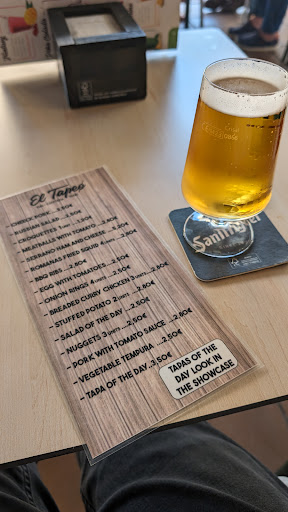 El Tapeo
- GINGER PORK....2,50€
- RUSSIAN SALAD....2,50€
- CROQUETTES 1 UNIT...1,50€
- MEATBALLS WITH TOMATO....2,50€
- SERRANO HAM AND CHEESE....2,50€
- ROMANAS FRIED SQUID 4 UNITS...2,50€
- BBQ RIBS...2,50€
- EGG WITH TOMATOES...2,50€
- ONION RINGS 4 UNITS...2,50€
- BREADED CURRY CHICKEN 3 UNITS...2,50€
- STUFFED POTATO 2 UNITS...2,50€
- SALAD OF THE DAY...2,50€
- NUGGETS 3 UNITS...2,50€
- PORK WITH TOMATO SAUCE ...2,50€
- VEGETABLE TEMPURA ...2,50€
- TAPA OF THE DAY...2,50€
TAPAS OF THE
DAY LOOK IN
THE SHOWCASE
SanMiguel